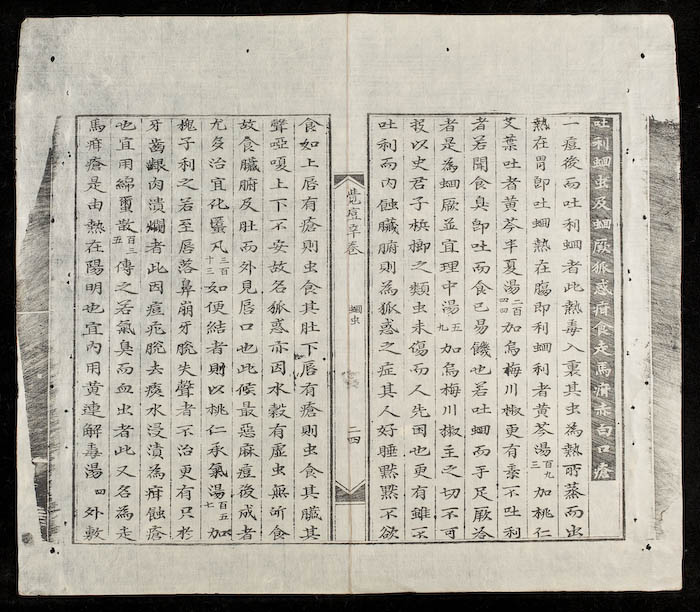 吐利蛔虫及蛔厥狐惑疳食走馬疳赤白口瘡
一痘後而吐利蛔者此熱毒入裏其虫為熱所蒸而出
熱在胃即吐蛔熱在膓即利蛔利者黃芩湯百九三加桃仁
艾葉吐者黃芩半夏湯二百四四加烏梅川椒更有棗不吐利
者若聞食臭即吐而食已易饑也若吐蛔而手足厥冷
者是為蛔厥並宜理中湯五九加烏梅川椒主之切不可
投以史君子梹榔之類虫未傷而人先困也更有雖不
吐利而內蝕臟腑則為狐惑之症其人好睡黙黙不欲
覺痘章卷
蛔虫
二四
食如上唇有瘡則虫食其肚下唇有瘡則虫食其臟其
聲啞嗄上下不安故名狐惑亦因水穀有虛虫無所食
故食臟腑及肚而外見唇口也此候最惡麻痘後成者
尤多治宜化䘌凡三百十三如便結者則以桃仁承氣湯百五七加
槐子利之若至唇落鼻崩牙脫失聲者不治更有只於
牙齒齦肉潰爛者此因痘疕脫去痰水浸漬為疳蝕瘡
也宜用綿蠒散百三五傳之若氣臭而血出者此又名為走
馬疳瘡是由熱在陽明也宜內用黃連解毒湯四外敷